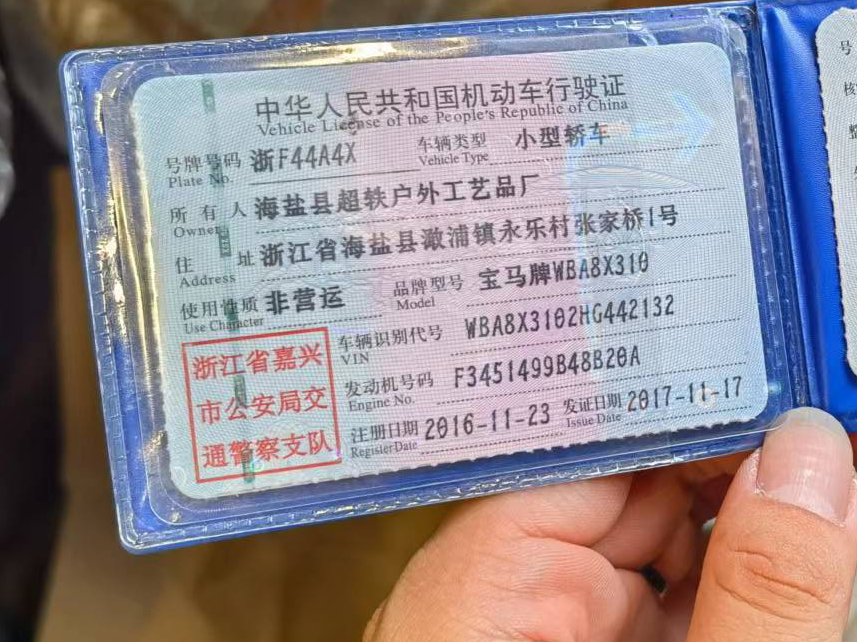 中华人民共和国机动车行驶证
Vehicle License of the People's Republic of China
号牌号码 浙F44A4X 车辆类型 小型轿车
Plate No. Vehicle Type
所有人 海盐县超轶户外工艺品厂
Owner
住址 浙江省海盐县澉浦镇永乐村张家桥1号
Address
使用性质 非营运 品牌型号 宝马牌WBA8X310
Use Character Model
浙江省嘉兴
市公安局交
通警察支队
车辆识别代号 WBA8X3102HG442132
VIN
发动机号码 F3451499B48B20A
Engine No.
注册日期 2016-11-23 发证日期 2017-11-17
Register Date Issue Date
号
核
整